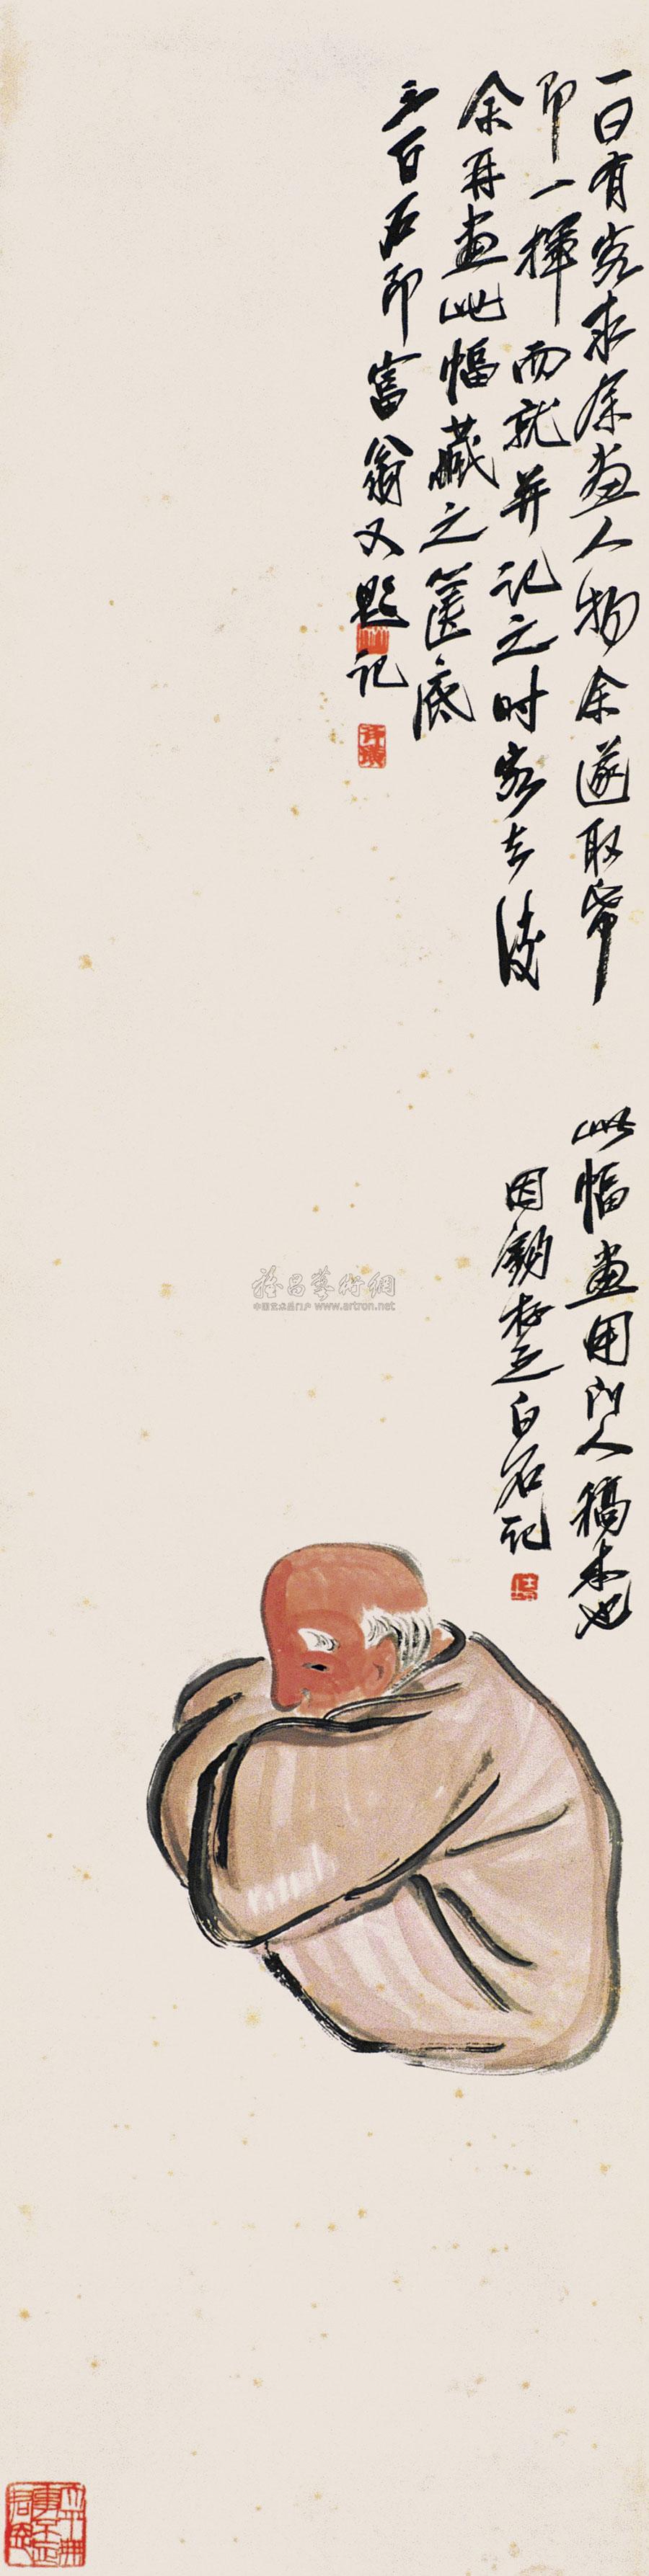 一日有客求余画人物余遂取笔
即一挥而就并记之时客去后
余再画此幅藏之箧底
三百石印富翁又题记
此幅画用门人稿本也
因钩存之白石记
雅昌藝術網
中国艺术品门户 www.artron.net